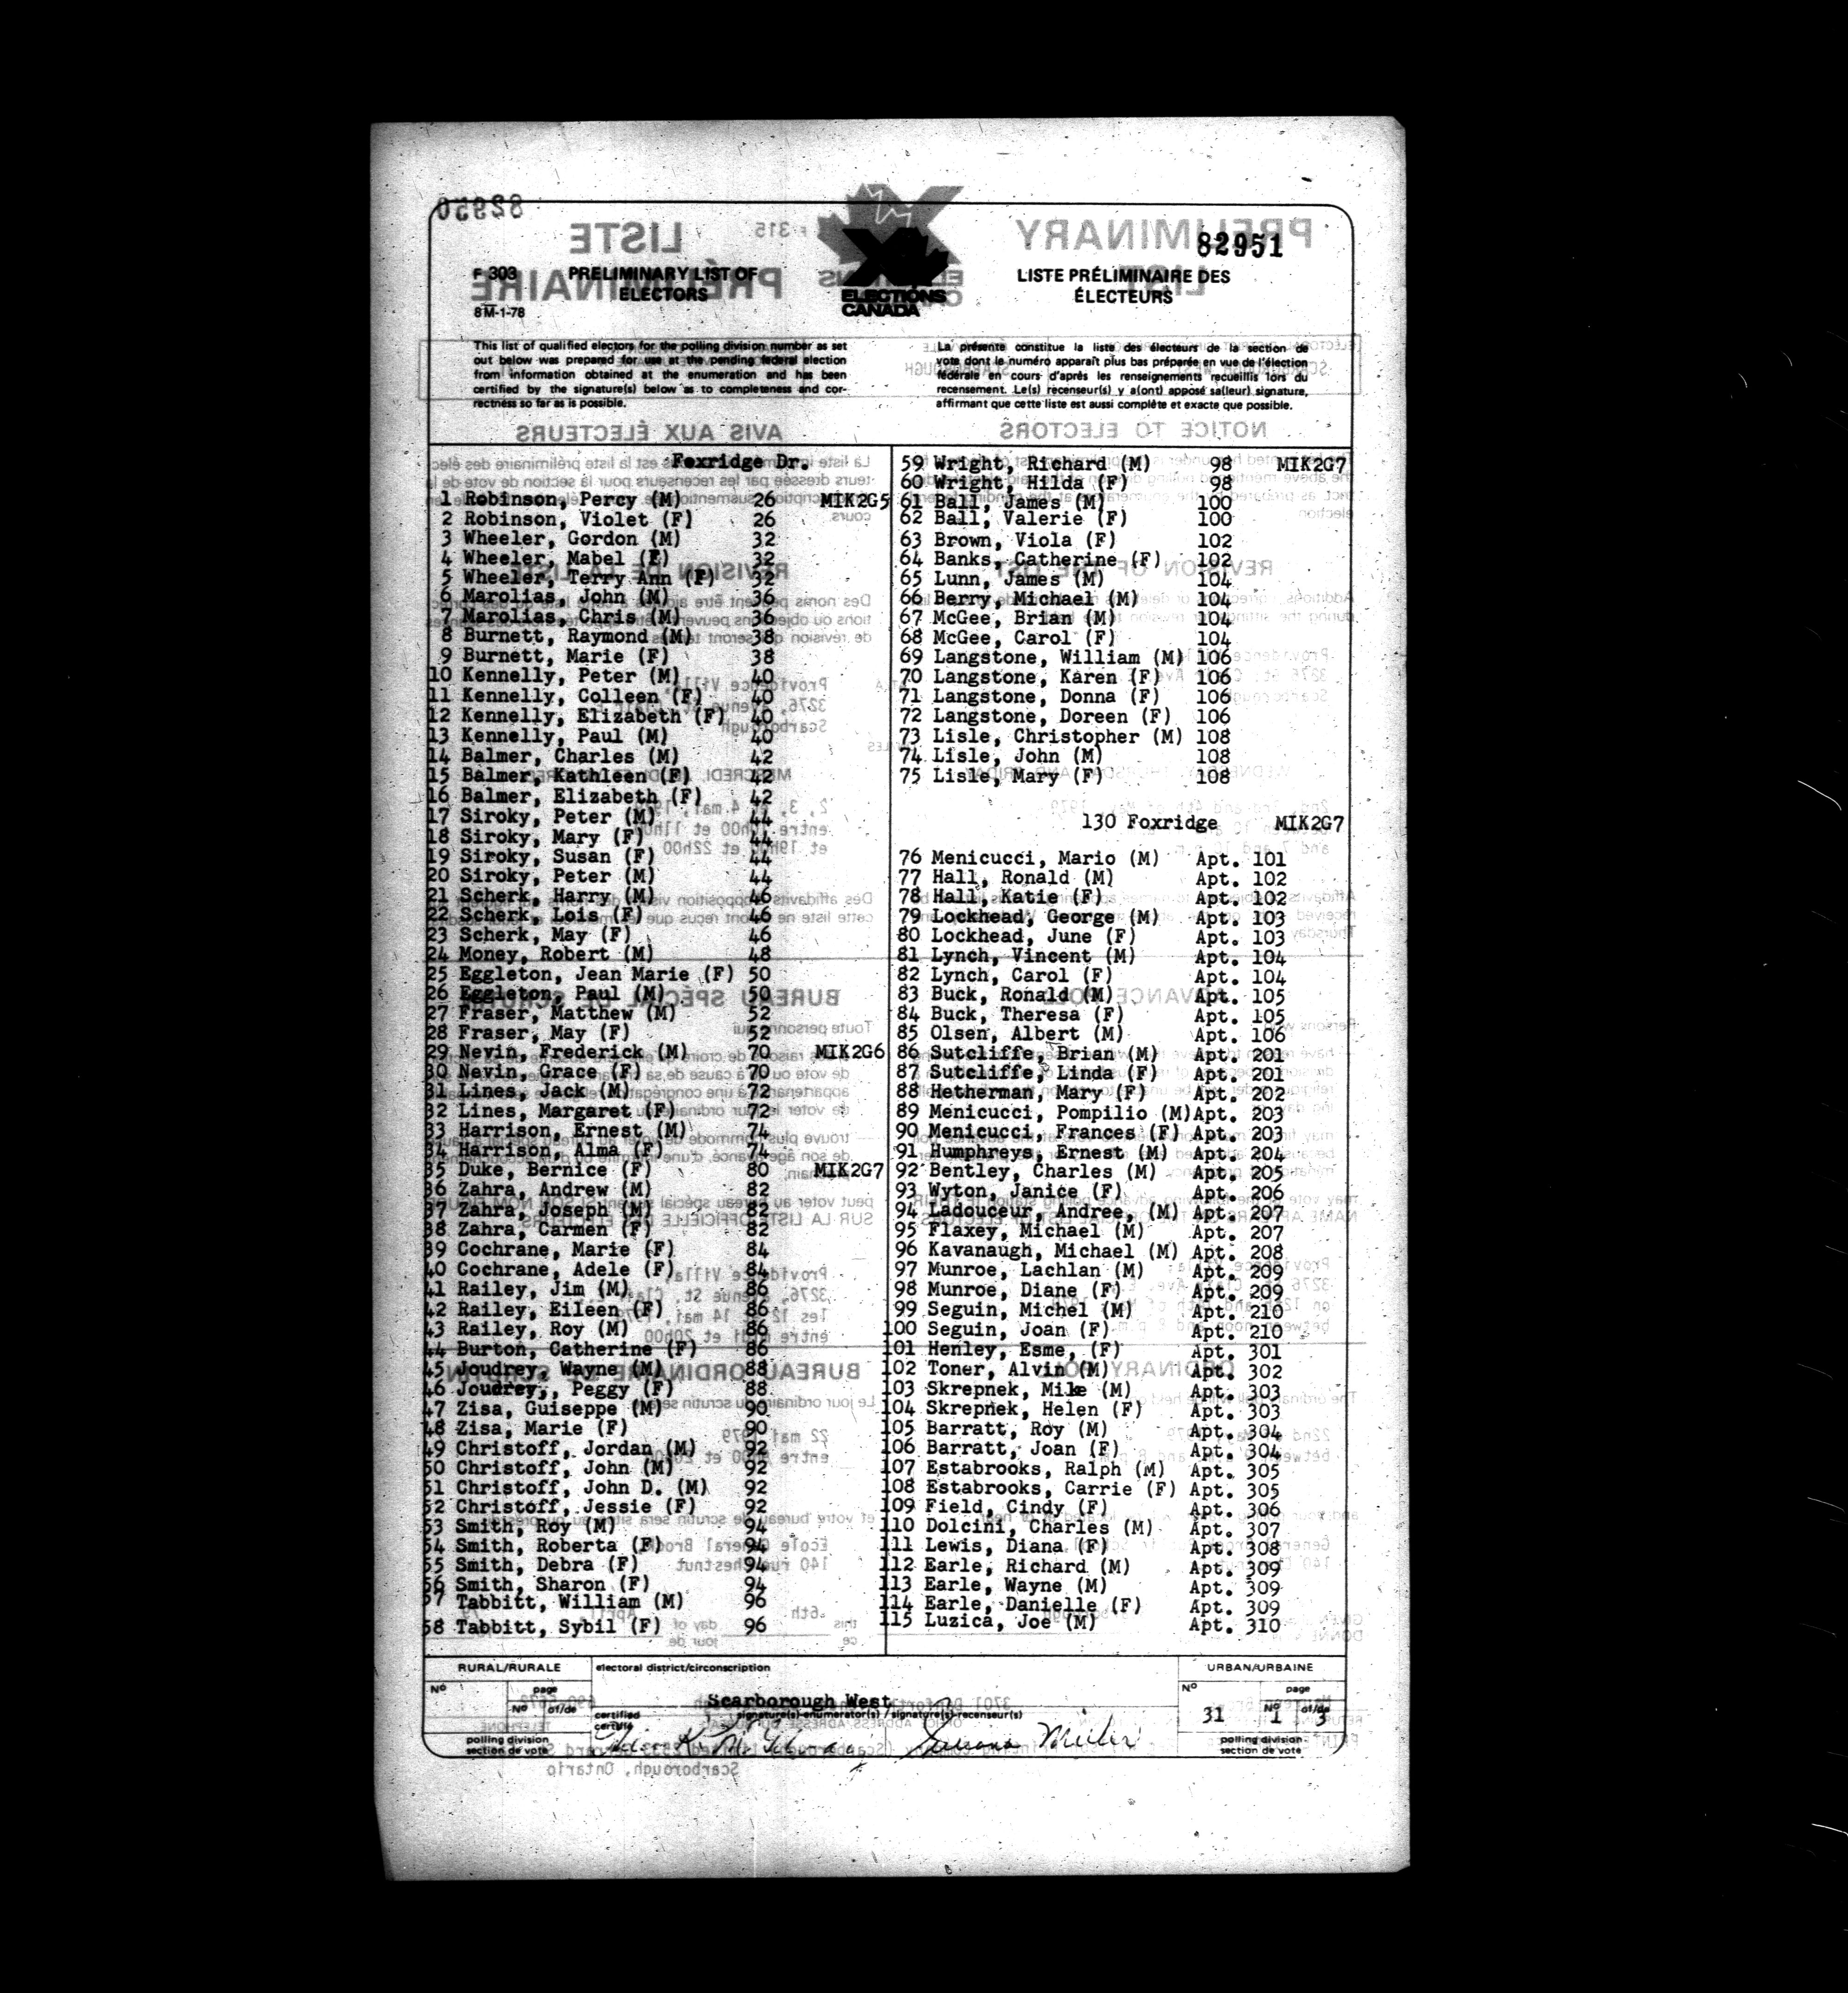 82951
F 303
8 M-1-78
PRELIMINARY LIST OF
ELECTORS
ELECTIONS
CANADA
LISTE PRÉLIMINAIRE DES
ÉLECTEURS
This list of qualified electors for the polling division number as set
out below was prepared for use at the pending federal election
from information obtained at the enumeration and has been
certified by the signature(s) below as to completeness and cor-
rectness so far as is possible.
La présente constitue la liste des électeurs de la section de
vote dont le numéro apparaît plus bas préparée en vue de l'élection
fédérale en cours d'après les renseignements recueillis lors du
recensement. Le(s) recenseur(s) y a(ont) apposé sa(leur) signature,
affirmant que cette liste est aussi complète et exacte que possible.
Foxridge Dr.
1 Robinson, Percy (M) 26 MIK2G5
2 Robinson, Violet (F) 26
3 Wheeler, Gordon (M) 32
4 Wheeler, Mabel (F) 32
5 Wheeler, Terry Ann (F) 32
6 Marolias, John (M) 36
7 Marolias, Chris (M) 36
8 Burnett, Raymond (M) 38
9 Burnett, Marie (F) 38
10 Kennelly, Peter (M) 40
11 Kennelly, Colleen (F) 40
12 Kennelly, Elizabeth (F) 40
13 Kennelly, Paul (M) 40
14 Balmer, Charles (M) 42
15 Balmer, Kathleen (F) 42
16 Balmer, Elizabeth (F) 42
17 Siroky, Peter (M) 44
18 Siroky, Mary (F) 44
19 Siroky, Susan (F) 44
20 Siroky, Peter (M) 44
21 Scherk, Harry (M) 46
22 Scherk, Lois (F) 46
23 Scherk, May (F) 46
24 Money, Robert (M) 48
25 Eggleton, Jean Marie (F) 50
26 Eggleton, Paul (M) 50
27 Fraser, Matthew (M) 52
28 Fraser, May (F) 52
29 Nevin, Frederick (M) 70 MIK2G6
30 Nevin, Grace (F) 70
31 Lines, Jack (M) 72
32 Lines, Margaret (F) 72
33 Harrison, Ernest (M) 74
34 Harrison, Alma (F) 74
35 Duke, Bernice (F) 80 MIK2G7
36 Zahra, Andrew (M) 82
37 Zahra, Joseph (M) 82
38 Zahra, Carmen (F) 82
39 Cochrane, Marie (F) 84
40 Cochrane, Adele (F) 84
41 Railey, Jim (M) 86
42 Railey, Eileen (F) 86
43 Railey, Roy (M) 86
44 Burton, Catherine (F) 86
45 Joudrey, Wayne (M) 88
46 Joudrey, Peggy (F) 88
47 Zisa, Guiseppe (M) 90
48 Zisa, Marie (F) 90
49 Christoff, Jordan (M) 92
50 Christoff, John (M) 92
51 Christoff, John D. (M) 92
52 Christoff, Jessie (F) 92
53 Smith, Roy (M) 94
54 Smith, Roberta (F) 94
55 Smith, Debra (F) 94
56 Smith, Sharon (F) 94
57 Tabbitt, William (M) 96
58 Tabbitt, Sybil (F) 96
59 Wright, Richard (M) 98 MIK2G7
60 Wright, Hilda (F) 98
61 Ball, James (M) 100
62 Ball, Valerie (F) 100
63 Brown, Viola (F) 102
64 Banks, Catherine (F) 102
65 Lunn, James (M) 104
66 Berry, Michael (M) 104
67 McGee, Brian (M) 104
68 McGee, Carol (F) 104
69 Langstone, William (M) 106
70 Langstone, Karen (F) 106
71 Langstone, Donna (F) 106
72 Langstone, Doreen (F) 106
73 Lisle, Christopher (M) 108
74 Lisle, John (M) 108
75 Lisle, Mary (F) 108
130 Foxridge MIK2G7
76 Menicucci, Mario (M) Apt. 101
77 Hall, Ronald (M) Apt. 102
78 Hall, Katie (F) Apt. 102
79 Lockhead, George (M) Apt. 103
80 Lockhead, June (F) Apt. 103
81 Lynch, Vincent (M) Apt. 104
82 Lynch, Carol (F) Apt. 104
83 Buck, Ronald (M) Apt. 105
84 Buck, Theresa (F) Apt. 105
85 Olsen, Albert (M) Apt. 106
86 Sutcliffe, Brian (M) Apt. 201
87 Sutcliffe, Linda (F) Apt. 201
88 Hetherman, Mary (F) Apt. 202
89 Menicucci, Pompilio (M) Apt. 203
90 Menicucci, Frances (F) Apt. 203
91 Humphreys, Ernest (M) Apt. 204
92 Bentley, Charles (M) Apt. 205
93 Wyton, Janice (F) Apt. 206
94 Ladouceur, Andree, (M) Apt. 207
95 Flaxey, Michael (M) Apt. 207
96 Kavanaugh, Michael (M) Apt. 208
97 Munroe, Lachlan (M) Apt. 209
98 Munroe, Diane (F) Apt. 209
99 Seguin, Michel (M) Apt. 210
100 Seguin, Joan (F) Apt. 210
101 Henley, Esme, (F) Apt. 301
102 Toner, Alvin (M) Apt. 302
103 Skrepnek, Mike (M) Apt. 303
104 Skrepnek, Helen (F) Apt. 303
105 Barratt, Roy (M) Apt. 304
106 Barratt, Joan (F) Apt. 304
107 Estabrooks, Ralph (M) Apt. 305
108 Estabrooks, Carrie (F) Apt. 305
109 Field, Cindy (F) Apt. 306
110 Dolcini, Charles (M) Apt. 307
111 Lewis, Diana (F) Apt. 308
112 Earle, Richard (M) Apt. 309
113 Earle, Wayne (M) Apt. 309
114 Earle, Danielle (F) Apt. 309
115 Luzica, Joe (M) Apt. 310
RURAL/RURALE
No
page
No of/de
polling division
section de vote
electoral district/circonscription
Scarborough West
certified
certifié
signature(s)-enumerator(s) / signature(s)-recenseur(s)
URBAN/URBAINE
No
page
No of/de
31 1 3
polling division
section de vote